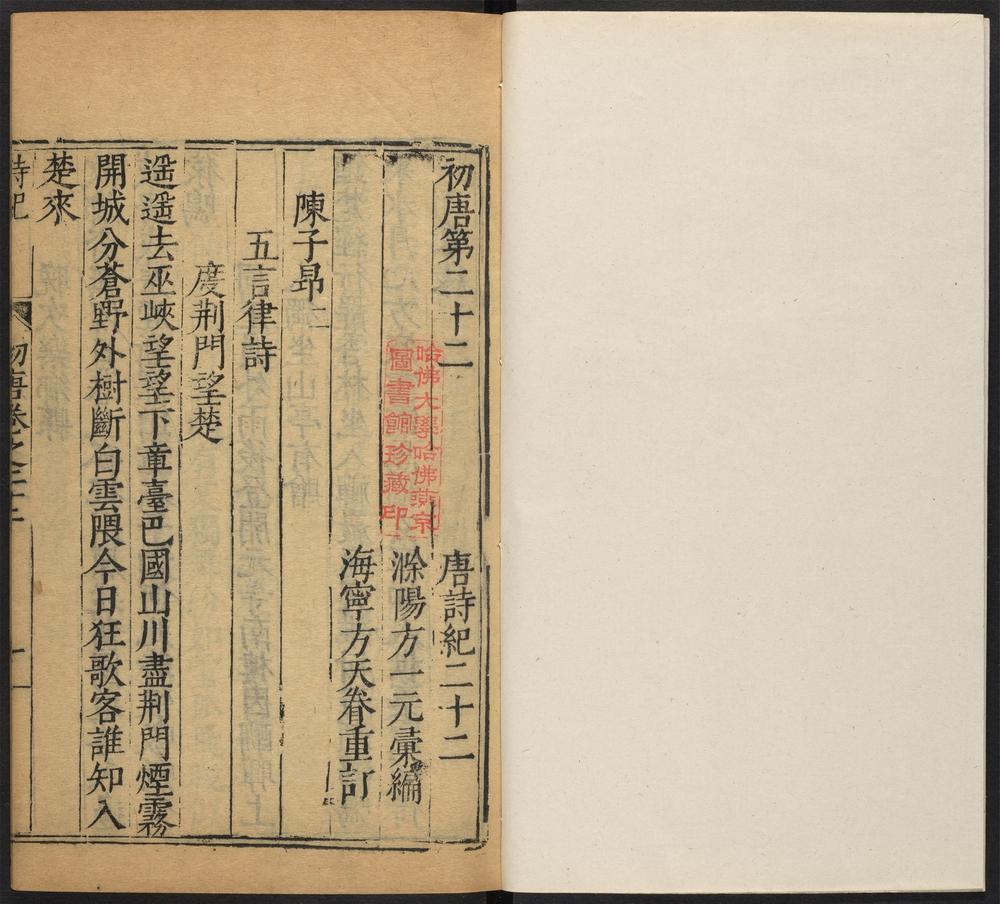 初唐第二十二
唐詩紀二十二
滁陽方一元彙編
海寧方天眷重訂
陳子昻二
五言律詩
度荆門望楚
遥遥去巫峽望望下章臺巴國山川盡荆門煙霧
開城分蒼野外樹斷白雲隈今日狂歌客誰知入
楚來
哈佛大學哈佛燕京
圖書館珍藏印